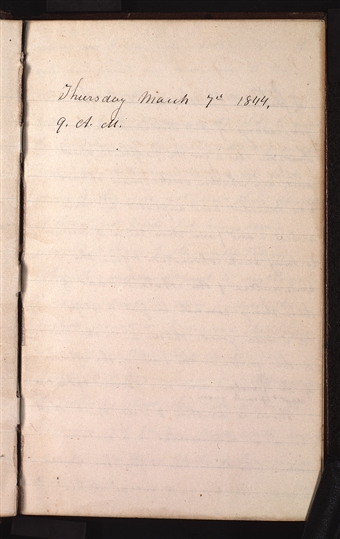 Thursday March 7d 1844,
9. A. M.